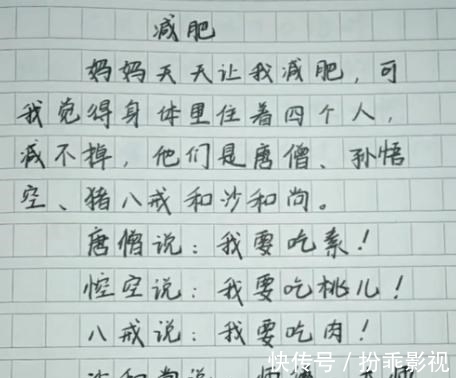 减肥
妈妈天天让我减肥，可
我觉得身体里住着四个人，
减不掉，他们是唐僧、孙悟
空、猪八戒和沙和尚。
唐僧说：我要吃素！
悟空说：我要吃桃儿！
八戒说：我要吃肉！
沙和尚说
快传号／扮乖影视